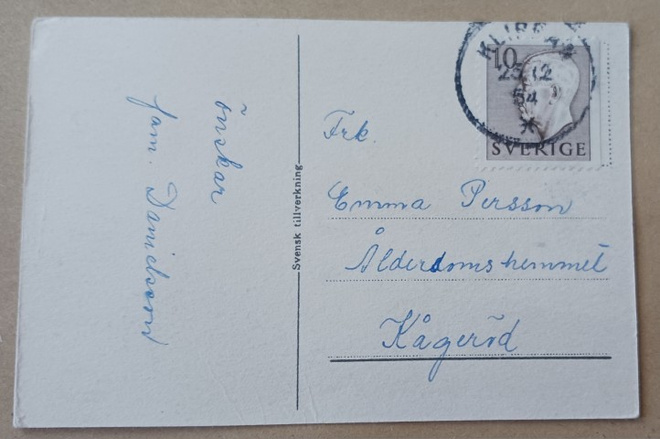 önskar
fam. Danielsson
Svensk tillverkning
KLIPPAN
23 12
54
10
SVERIGE
Frk.
Emma Persson
Ålderdomshemmet
Kågeröd